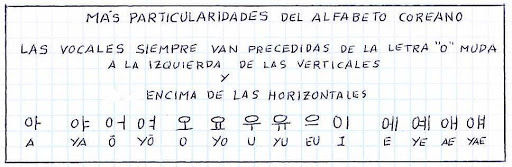 MÁS PARTICULARIDADES DEL ALFABETO COREANO
LAS VOCALES SIEMPRE VAN PRECEDIDAS DE LA LETRA "O" MUDA
A LA IZQUIERDA DE LAS VERTICALES
Y
ENCIMA DE LAS HORIZONTALES
아 야 어 여 오 요 우 유 으 이 에 예 애 얘
A YA Ŏ YŎ O YO U YU EU I E YE AE YAE